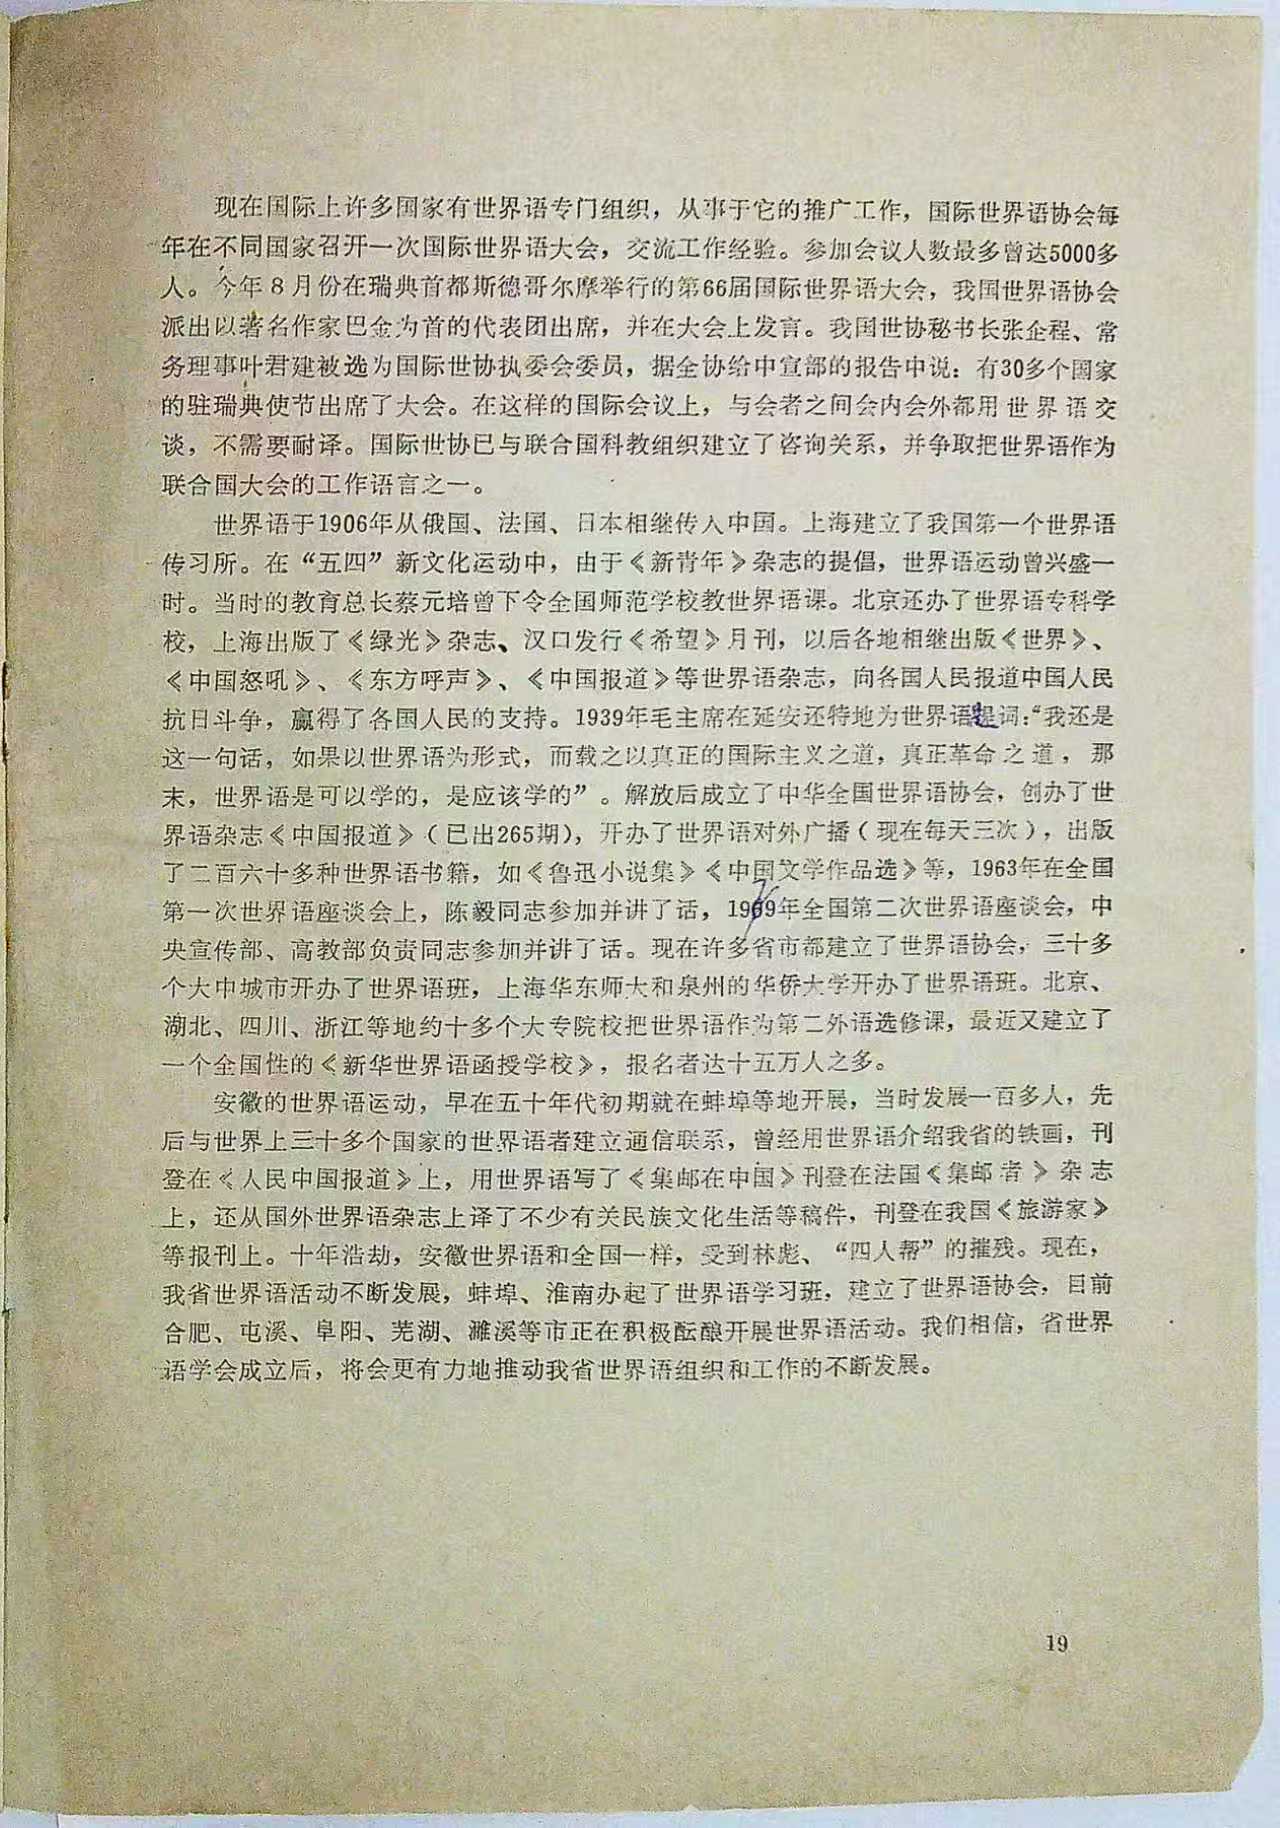 现在国际上许多国家有世界语专门组织，从事于它的推广工作，国际世界语协会每
年在不同国家召开一次国际世界语大会，交流工作经验。参加会议人数最多曾达5000多
人。今年8月份在瑞典首都斯德哥尔摩举行的第66届国际世界语大会，我国世界语协会
派出以著名作家巴金为首的代表团出席，并在大会上发言。我国世协秘书长张企程、常
务理事叶君建被选为国际世协执委会委员，据全协给中宣部的报告中说：有30多个国家
的驻瑞典使节出席了大会。在这样的国际会议上，与会者之间会内会外都用世界语交
谈，不需要耐译。国际世协已与联合国科教组织建立了咨询关系，并争取把世界语作为
联合国大会的工作语言之一。
世界语于1906年从俄国、法国、日本相继传入中国。上海建立了我国第一个世界语
传习所。在“五四”新文化运动中，由于《新青年》杂志的提倡，世界语运动曾兴盛一
时。当时的教育总长蔡元培曾下令全国师范学校教世界语课。北京还办了世界语专科学
校，上海出版了《绿光》杂志、汉口发行《希望》月刊，以后各地相继出版《世界》、
《中国怒吼》、《东方呼声》、《中国报道》等世界语杂志，向各国人民报道中国人民
抗日斗争，赢得了各国人民的支持。1939年毛主席在延安还特地为世界语题词：“我还是
这一句话，如果以世界语为形式，而载之以真正的国际主义之道，真正革命之道，那
末，世界语是可以学的，是应该学的”。解放后成立了中华全国世界语协会，创办了世
界语杂志《中国报道》（已出265期），开办了世界语对外广播（现在每天三次），出版
了二百六十多种世界语书籍，如《鲁迅小说集》《中国文学作品选》等，1963年在全国
第一次世界语座谈会上，陈毅同志参加并讲了话，1979年全国第二次世界语座谈会，中
央宣传部、高教部负责同志参加并讲了话。现在许多省市都建立了世界语协会，三十多
个大中城市开办了世界语班，上海华东师大和泉州的华侨大学开办了世界语班。北京、
湖北、四川、浙江等地约十多个大专院校把世界语作为第二外语选修课，最近又建立了
一个全国性的《新华世界语函授学校》，报名者达十五万人之多。
安徽的世界语运动，早在五十年代初期就在蚌埠等地开展，当时发展一百多人，先
后与世界上三十多个国家的世界语者建立通信联系，曾经用世界语介绍我省的铁画，刊
登在《人民中国报道》上，用世界语写了《集邮在中国》刊登在法国《集邮者》杂志
上，还从国外世界语杂志上译了不少有关民族文化生活等稿件，刊登在我国《旅游家》
等报刊上。十年浩劫，安徽世界语和全国一样，受到林彪、“四人帮”的摧残。现在，
我省世界语活动不断发展，蚌埠、淮南办起了世界语学习班，建立了世界语协会，目前
合肥、屯溪、阜阳、芜湖、濉溪等市正在积极酝酿开展世界语活动。我们相信，省世界
语学会成立后，将会更有力地推动我省世界语组织和工作的不断发展。
19